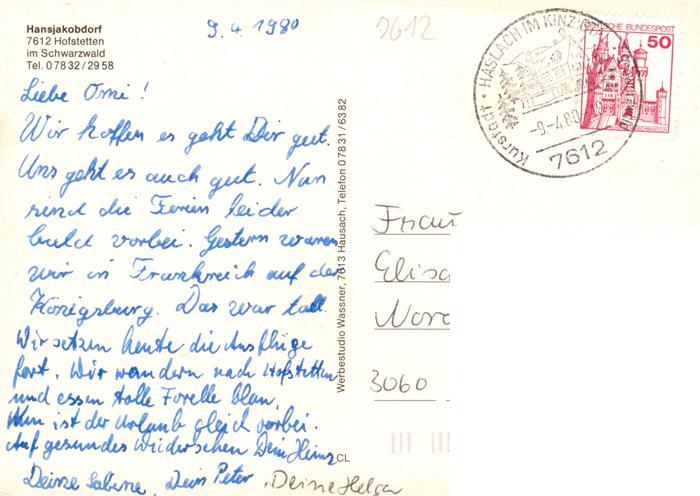 Hansjakobdorf
7612 Hofstetten
im Schwarzwald
Tel. 07832/2958
9.4.1980
7612
HASLACH IM KINZIGTAL
-9-4.80
7612
Kurstadt
DEUTSCHE BUNDESPOST
50
Liebe Omi!
Wir hoffen es geht Dir gut.
Uns geht es auch gut. Nun
sind die Ferien leider
bald vorbei. Gestern waren
wir in Frankreich auf der
Königsburg. Das war toll.
Wir setzen heute die Ausflüge
fort. Wir wandern nach Hofstetten
und essen tolle Forelle blau.
Nun ist der Urlaub gleich vorbei.
Auf gesundes Wiedersehen Dein Heinz
Deine Sabine, Dein Peter, Deine Helga
Werbestudio Wassner, 7613 Hausach, Telefon 07831/6382
CL
Frau
Elisa
Nord
3060